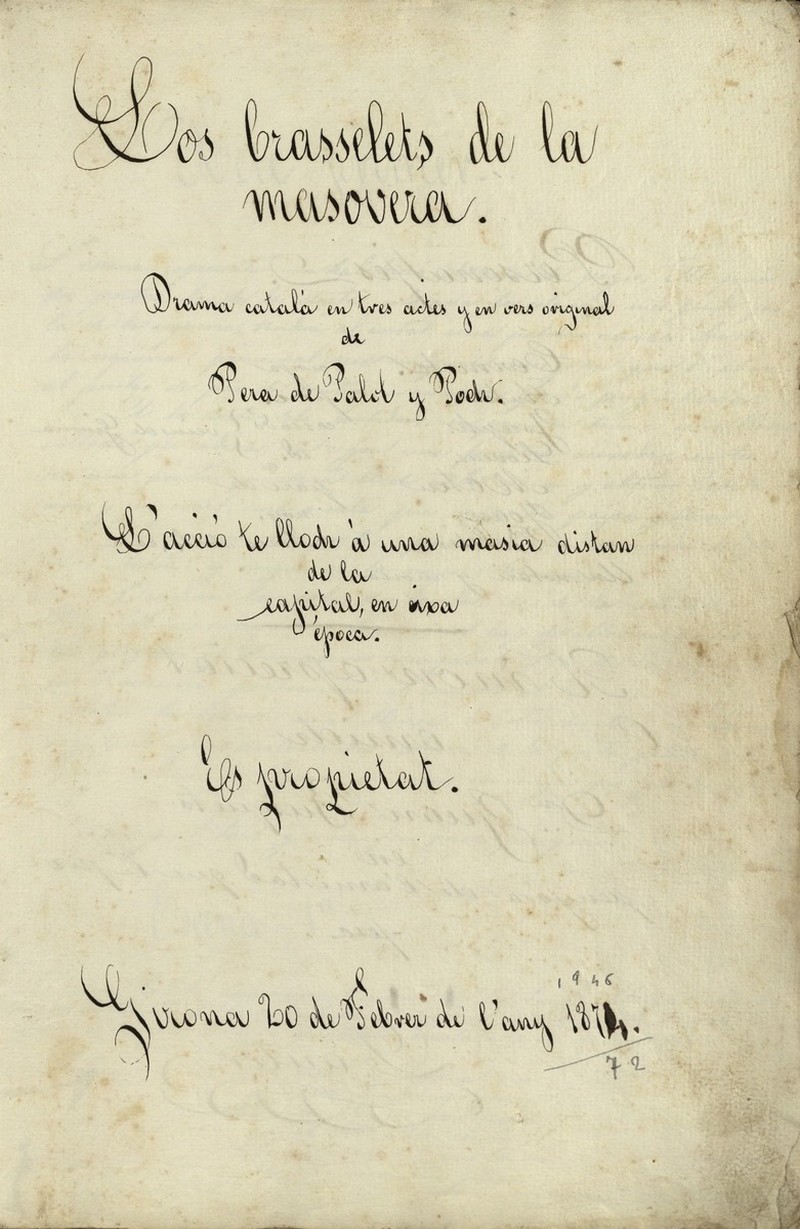 Los brasselets de la
masovera.
Drama català en tres actes y en vers original
de
Pera de Palol y Poch.
L'acció te lloch à una masia distan
de la
capital, en eixa
época.
Es propietat.
1946
Girona 20 de Febrer de l'any 1874.
72